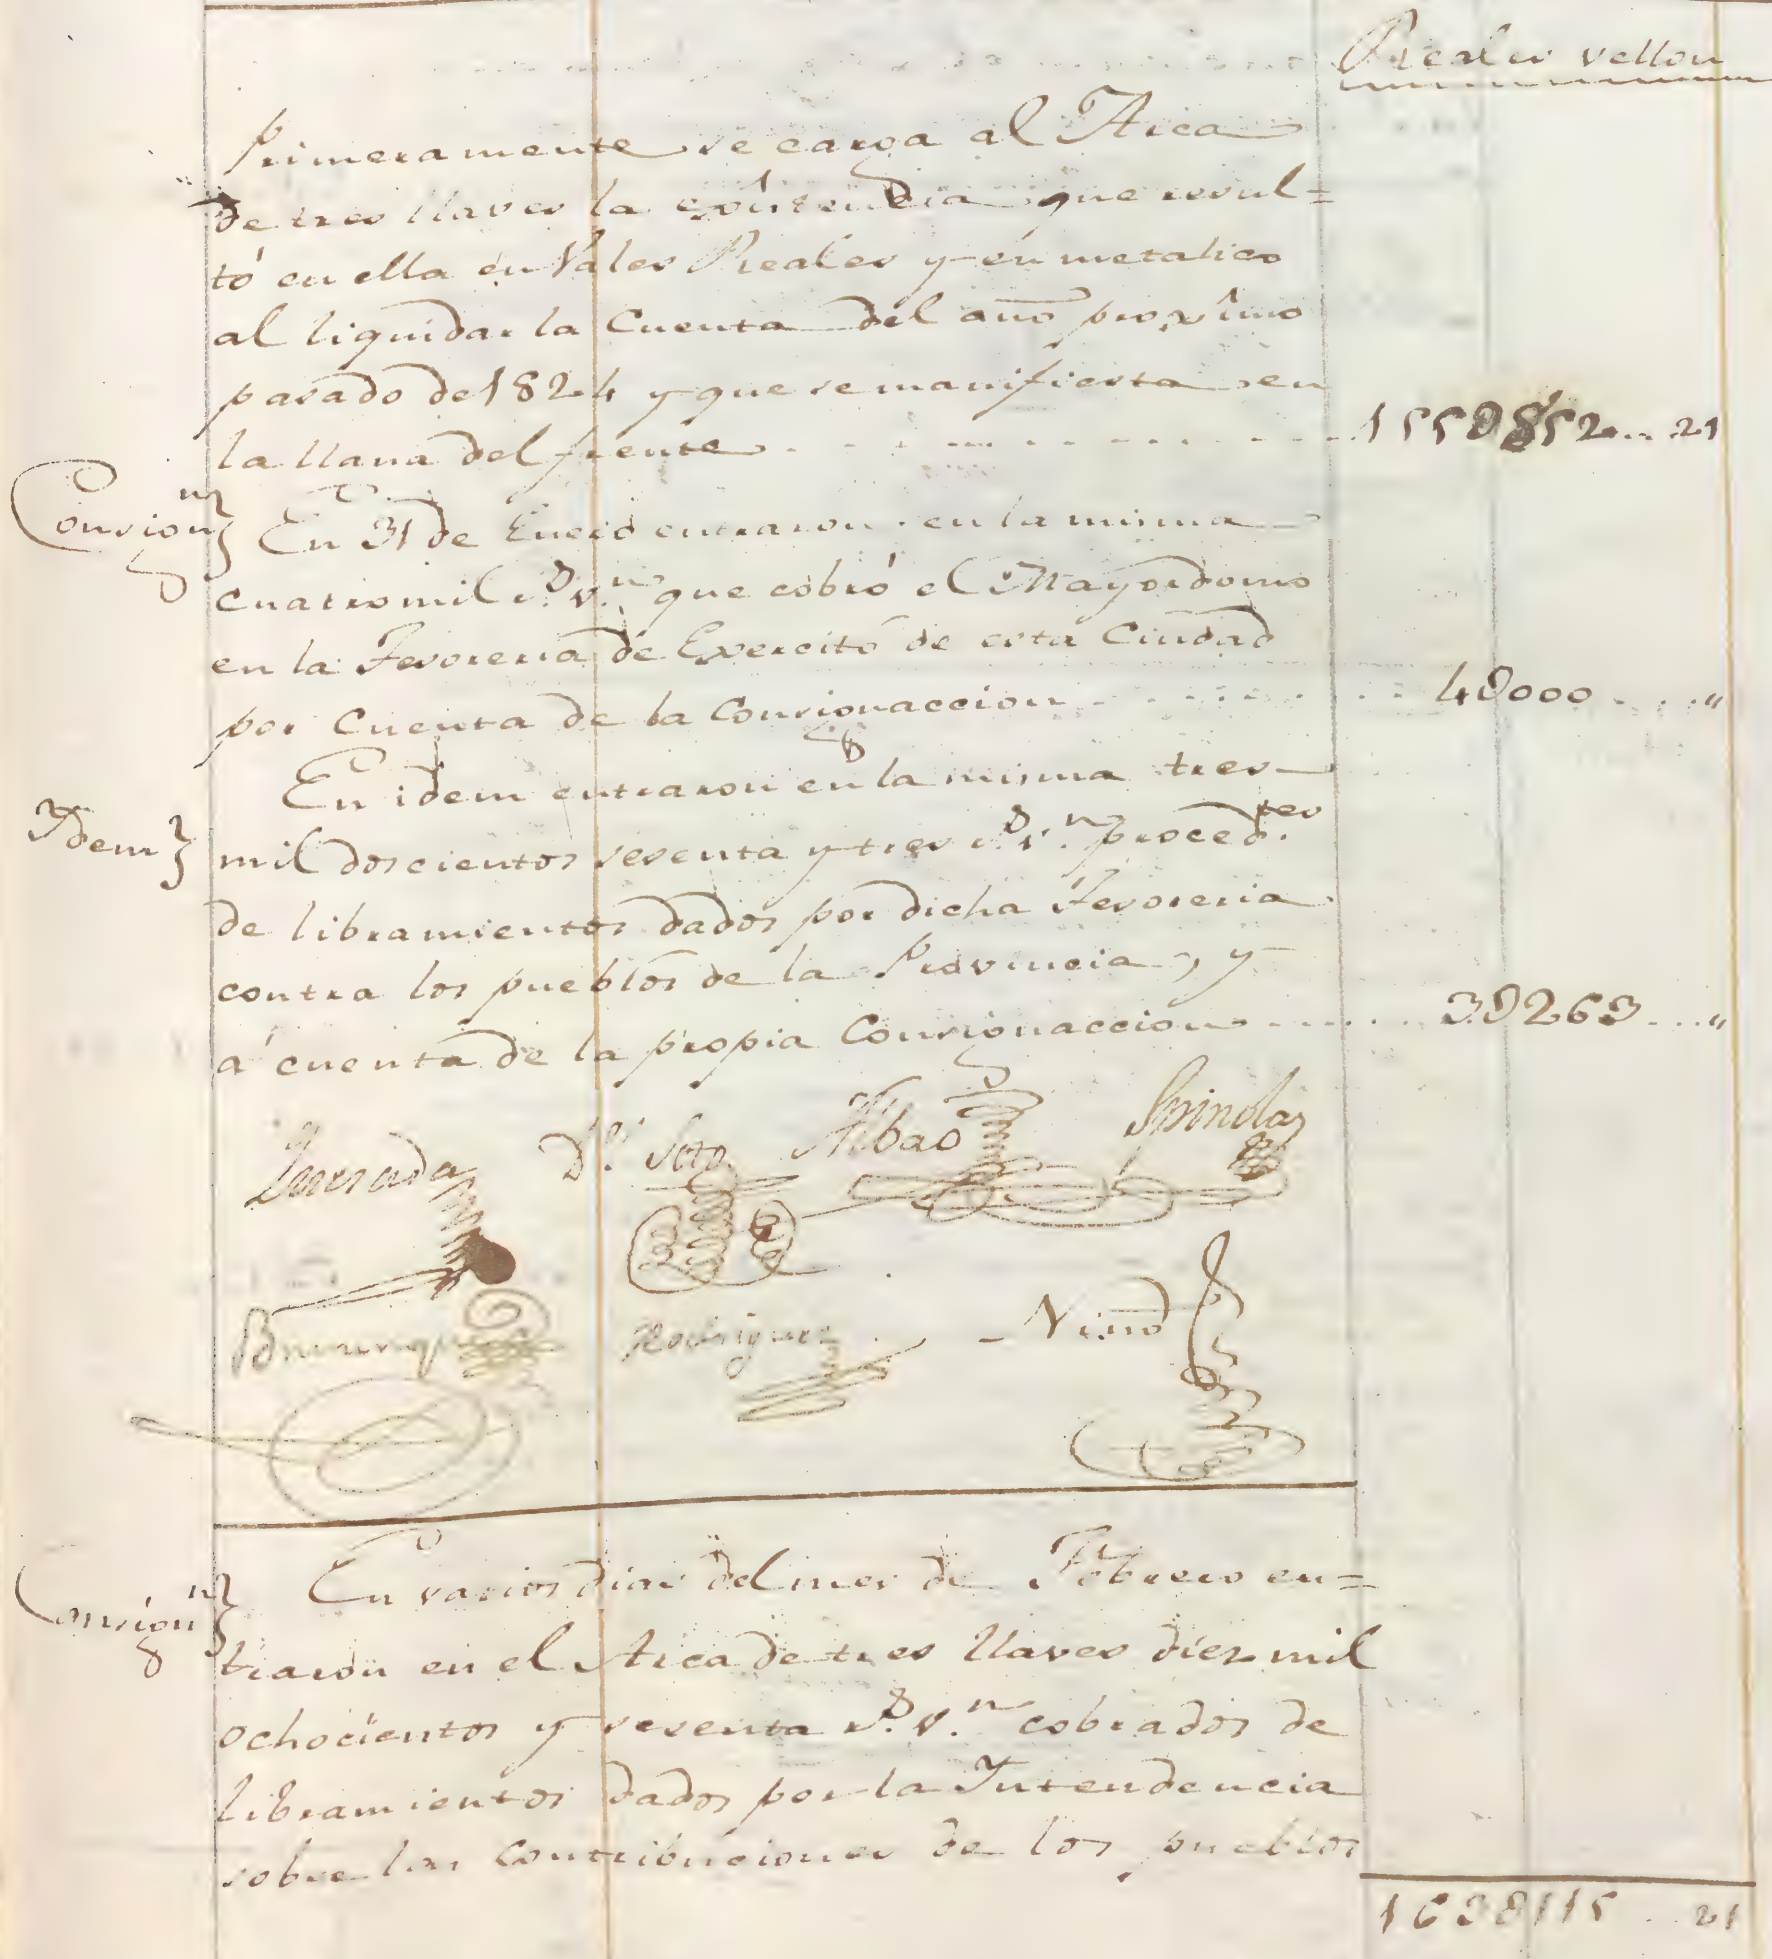 Reales vellon
Primeramente se carga al Arca
de tres llaves la existencia que resul=
tó en ella en Vales Reales y en metalico
al liquidar la Cuenta del año proximo
pasado de 1824 y que se manifiesta en
la llana del frente 155D852 21
Consign.n En 31 de Enero entraron en la misma
cuatro mil r.s v.n que cobró el Mayordomo
en la Tesoreria de Exercito de esta Ciudad
por Cuenta de la Consignaccion 4D000 "
En idem entraron en la misma tres
Idem mil doscientos sesenta y tres r.s v.n proced.tes
de libramientos dados por dicha Tesoreria
contra los pueblos de la Provincia, y
á cuenta de la propia Consignaccion 3D263 "
Quesada D.r Soto Albao Spinola
Rodriguez Niño
Consign.n En varios dias del mes de Febrero en=
traron en el Arca de tres llaves diez mil
ochocientos y sesenta r.s v.n cobrados de
libramientos dados por la Intendencia
sobre las Contribuciones de los pueblos
163D115 21